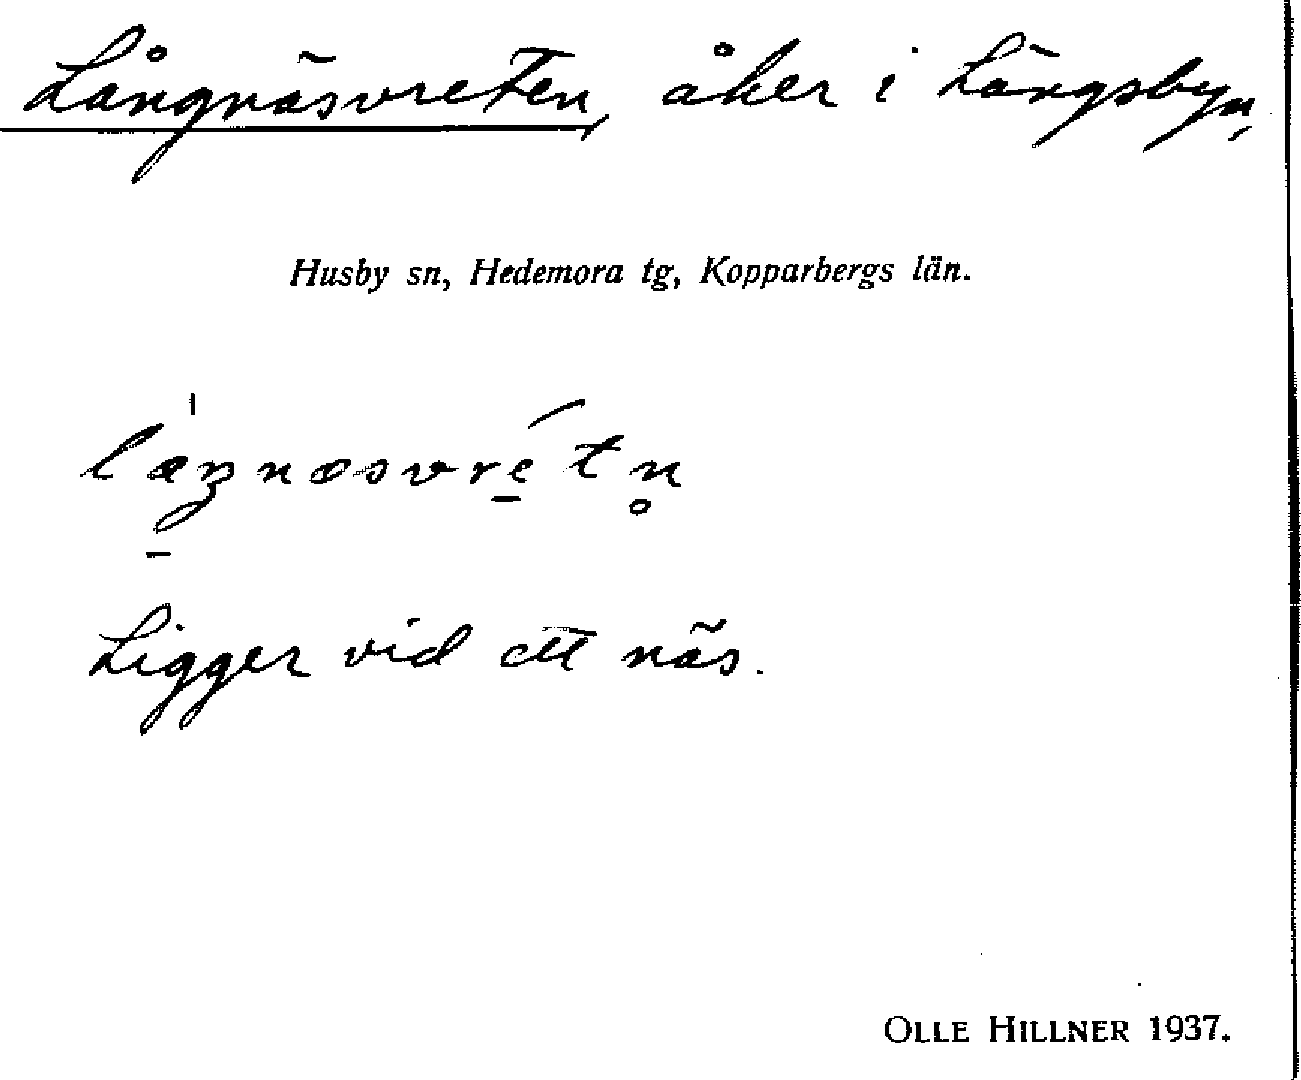 Långnäsvreten, åker i Långsbyn,
Husby sn, Hedemora tg, Kopparbergs län.
læŋnæsvre̠´tn̥
Ligger vid ett näs.
OLLE HILLNER 1937.